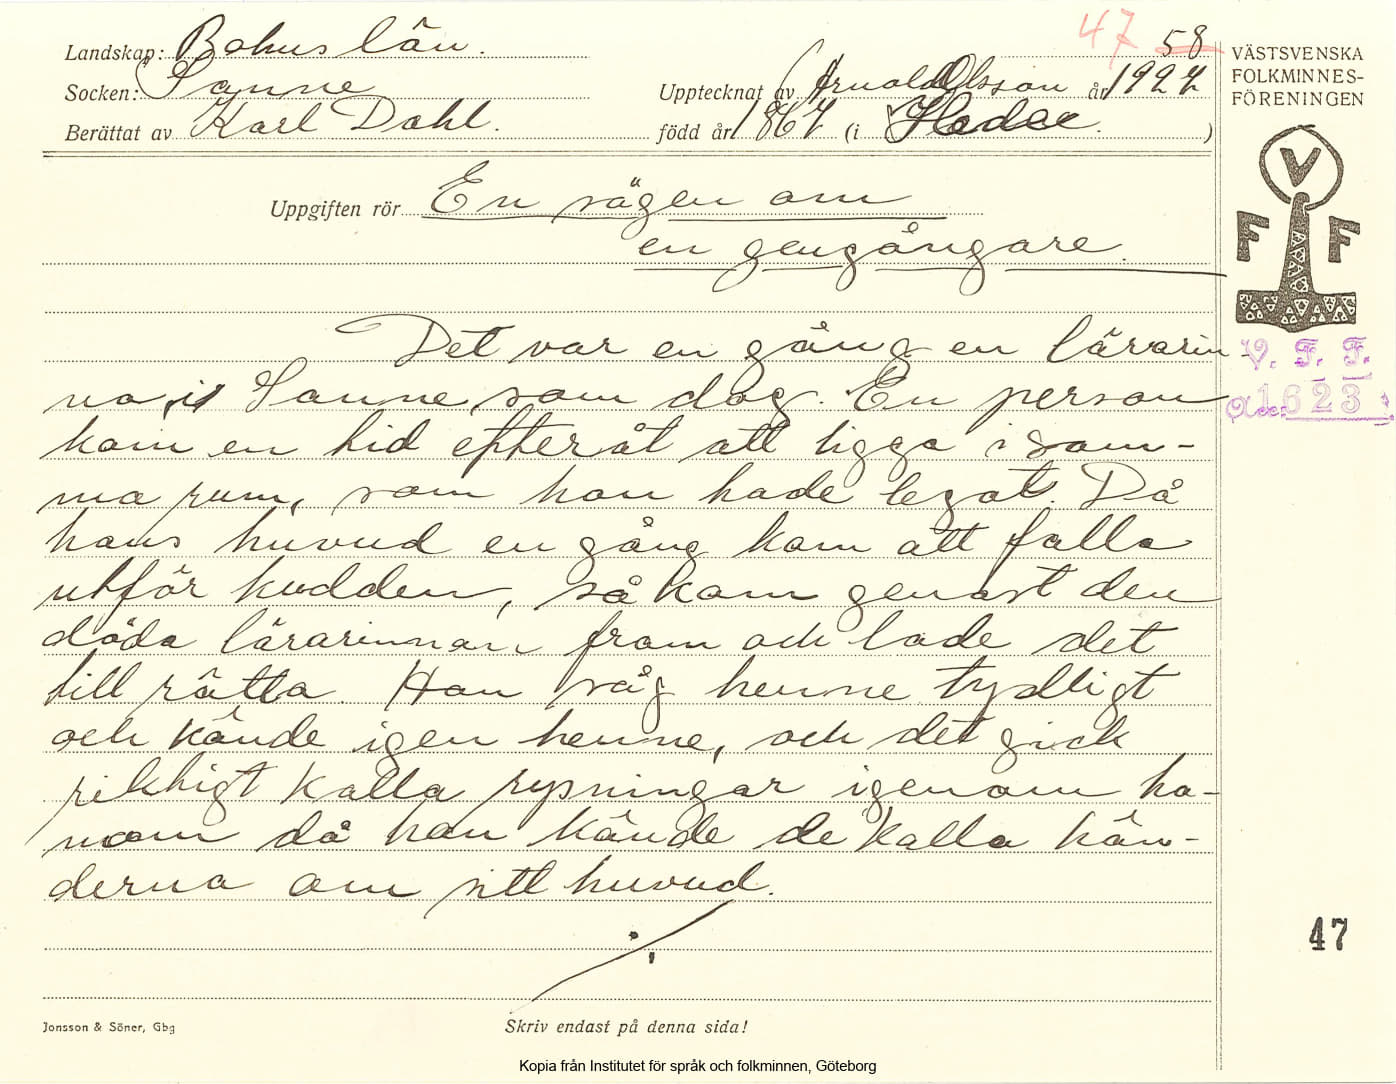 47 58
Landskap: Bohus län.
Socken: Sanne
Upptecknat av Arnold Olsson år 1927
Berättat av Karl Dahl.
född år 1867 (i Hede.)
VÄSTSVENSKA
FOLKMINNES-
FÖRENINGEN
V
F F
Uppgiften rör En sägen om
en gengångare.
V. F. F.
Acc: 1623
Det var en gång en lärarin-
na i Sanne, som dog. En person
kom en tid efteråt att ligga i sam-
ma rum, som hon hade legat. Då
hans huvud en gång kom att falla
utför kudden, så kom genast den
döda lärarinnan fram och lade det
till rätta. Han såg henne tydligt
och kände igen henne, och det gick
riktigt kalla rysningar igenom ho-
nom då han kände de kalla hän-
derna om sitt huvud.
47
Jonsson & Söner, Gbg
Skriv endast på denna sida!
Kopia från Institutet för språk och folkminnen, Göteborg